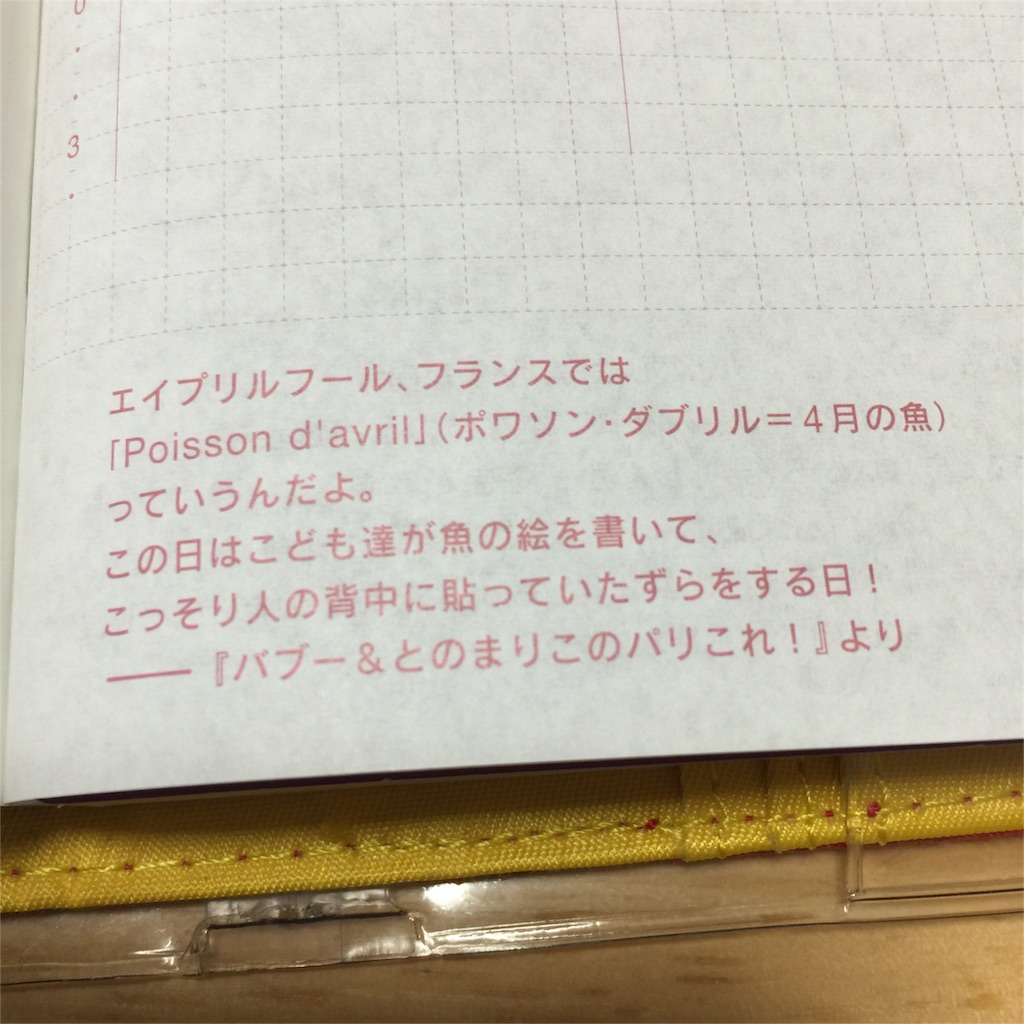 0
3
エイプリルフール、フランスでは
「Poisson d'avril」(ポワソン・ダブリル=4月の魚)
っていうんだよ。
この日はこども達が魚の絵を書いて、
こっそり人の背中に貼っていたずらをする日！
――『バブー＆とのまりこのパリこれ！』より